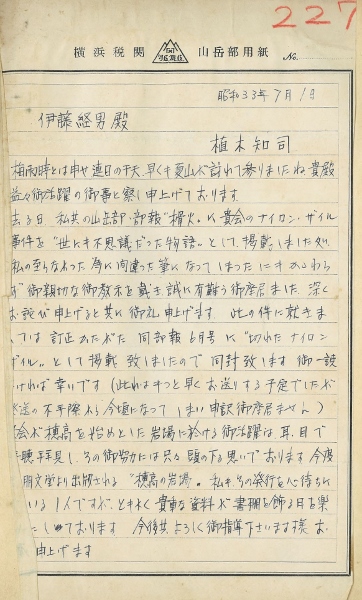 227
横浜税関 山岳部用紙
No.
昭和33年7月1日
伊藤経男殿
植木知司
梅雨時とは申せ連日の干天、早くも夏山が訪れて参りましたね 貴殿
益々御活躍の御事と察し申上げております。
去る日 私共の山岳部・部報"樏火"に貴会のナイロン・ザイル
事件を"世にも不思議だった物語"として掲載しました処、
私の至らなかった為に間違った筆になってしまったにもかゝわら
ず 御親切な御教示を戴き、誠に有難う御座居ました。深く
お詫び申上げると共に御礼申上げます 此の件に就きま
しては 訂正かたがた 同部報6月号に"切れたナイロン
ザイル"として掲載致しましたので同封致します 御一読
ければ幸いです(此れはもっと早くお送りする予定でしたが
発送の不手際から今頃になってしまい申訳御座居ません)
会が穂高を始めとした岩場に於ける御活躍は、耳、目で
聴、拝見し、その御努力には只々頭の下る思いであります 今度
朋文堂より出版される"穂高の岩場"。私もその発行を心待ちに
いる1人ですが、ともかく貴重な資料が書棚を飾る日を楽
しております 今後共よろしく御指導下さいます様 お
申上げます